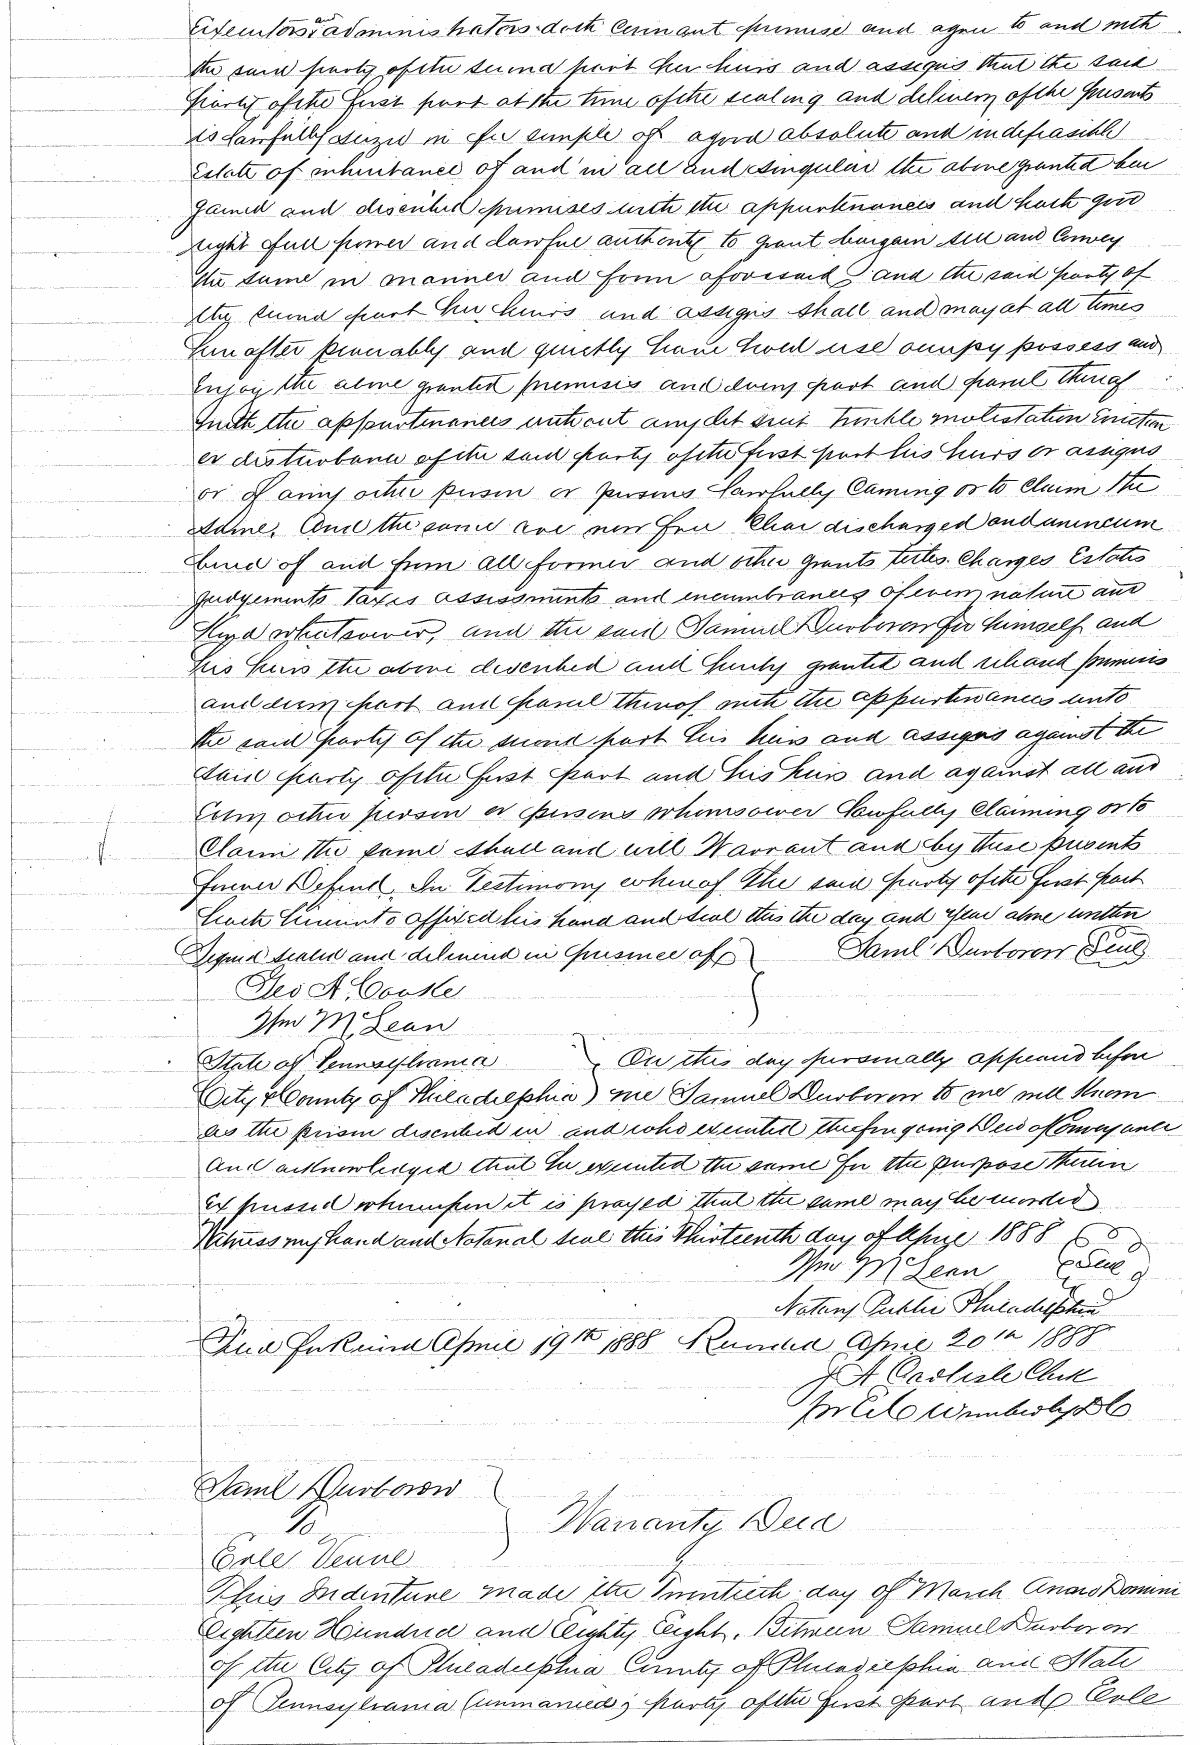 Executors and administrators doth covenant promise and agree to and with
the said party of the second part her heirs and assigns that the said
party of the first part at the time of the sealing and delivery of the presents
is lawfully seized in fee simple of a good absolute and indefeasible
Estate of inheritance of and in all and singular the above granted bar
gained and described premises with the appurtenances and hath good
right full power and lawful authority to grant bargain sell and Convey
the same in manner and form aforesaid, and the said party of
the second part her heirs and assigns shall and may at all times
hereafter peaceably and quietly have hold use occupy possess and
Enjoy the above granted premises and every part and parcel thereof
with the appurtenances without any let suit trouble molestation Eviction
or disturbance of the said party of the first part his heirs or assigns
or of any other person or persons lawfully Claming or to Claim the
same. And the same are now free Clear discharged and unincum
bered of and from all former and other grants titles Charges Estates
judgements taxes assessments and encumbrances of every nature and
Kynd whatsoever, and the said Samuel Durborow for himself and
his heirs the above described and hereby granted and released premises
and every part and parcel thereof with the appurtenances unto
the said party of the second part his heirs and assigns against the
said party of the first part and his heirs and against all and
Every other person or persons whomsoever lawfully Claiming or to
Claim the same shall and will Warrant and by these presents
forever Defend, In Testimony whereof the said party of the first part
hath hereunto affixed his hand and seal this the day and year above written
Signed sealed and delivered in presence of Saml Durborow Seal
Geo A. Cooke
Wm McLean
State of Pennsylvania On this day personally appeared before
City & County of Philadelphia) me Samuel Durborow to me well known
as the person described in and who executed the foregoing Deed of Conveyance
And acknowledged that he executed the same for the purpose therein
Expressed whereupon it is prayed that the same may be recorded
Witness my hand and Notarial seal this Thirteenth day of April 1888
Wm McLean Seal
Notary Public Philadelphia
Filed for Record April 19th 1888 Recorded April 20th 1888
J A Carlisle Clerk
Saml Durborow
To
Warranty Deed
Eole Venne
This Indenture made the Twentieth day of March Anno Domini
Eighteen Hundred and Eighty Eight, Between Samuel Durborow
of the City of Philadelphia County of Philadelphia and State
of Pennsylvania (unmarried) party of the first part and Eole